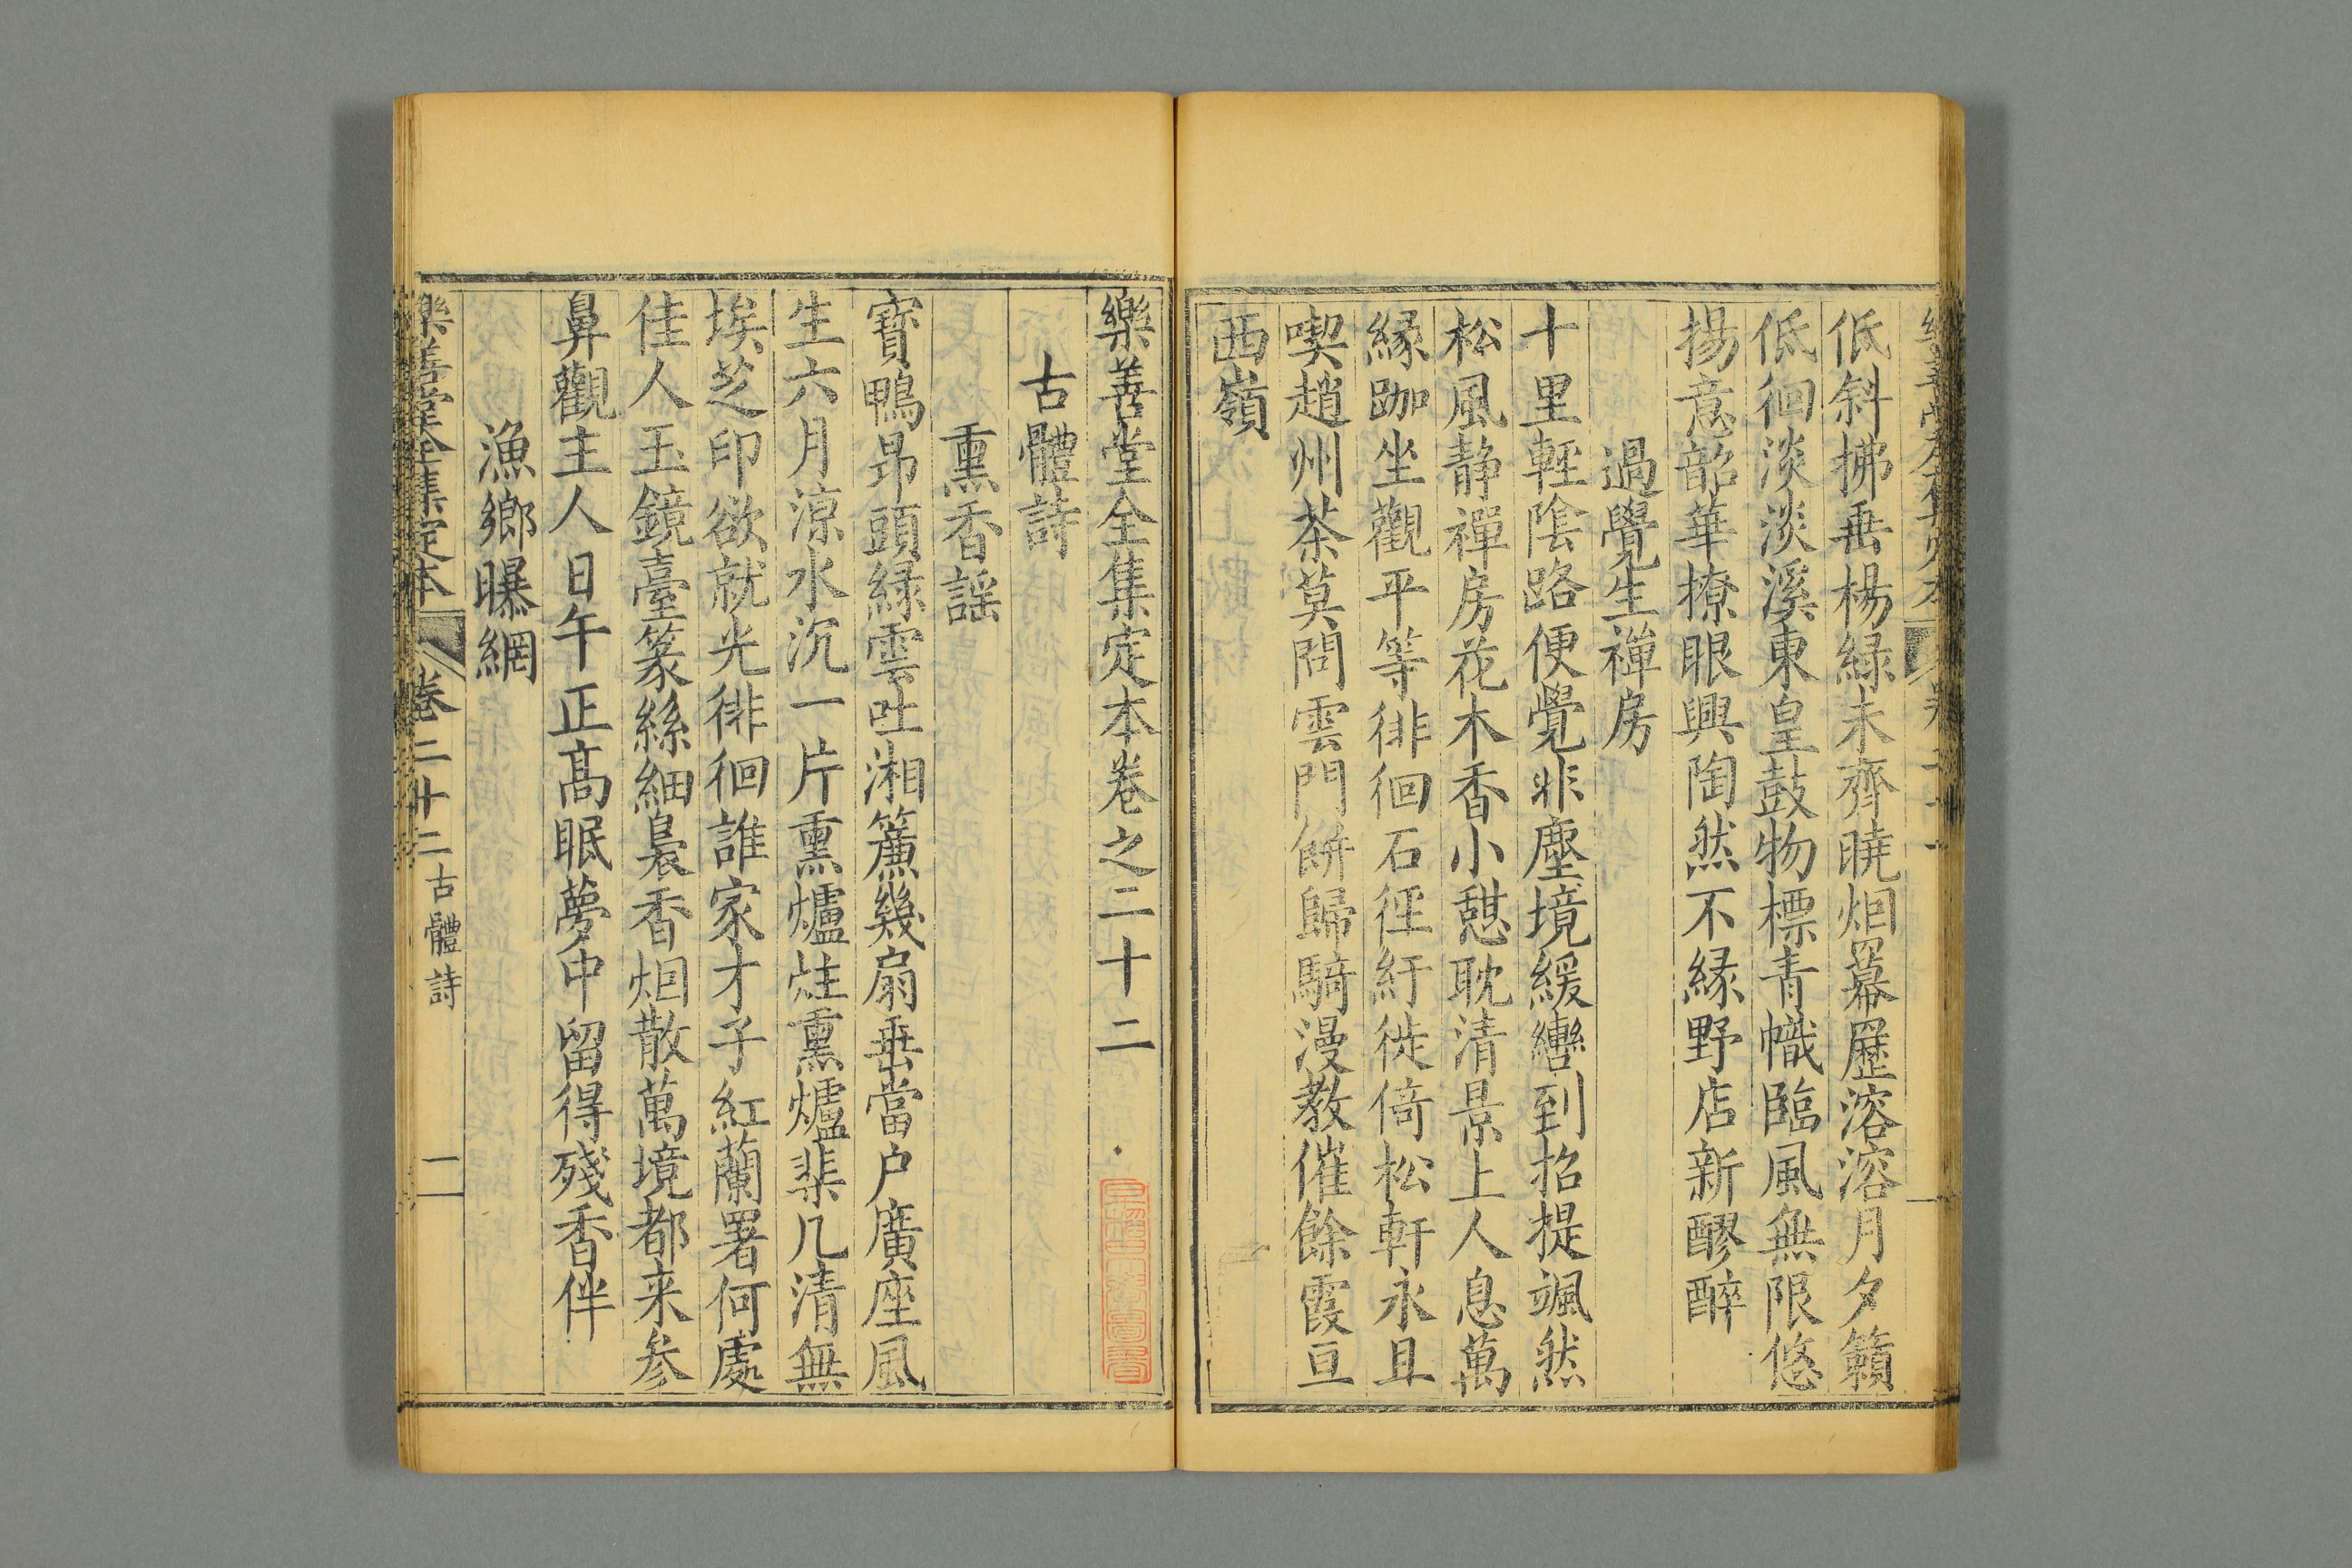 低斜拂垂楊緑未齊曉烟羃歷溶溶月夕籟
低徊淡淡溪東皇鼓物標青幟臨風無限悠
揚意韶華撩眼興陶然不緣野店新醪醉
過覺生禪房
十里輕陰路便覺非塵境緩轡到招提颯然
松風静禪房花木香小憇耽清景上人息萬
緣跏坐觀平等徘徊石徑紆徙倚松軒永且
喫趙州茶莫問雲門餅歸騎漫教催餘霞亘
西嶺
樂善堂全集定本卷之二十二
古體詩
熏香謡
寶鴨昂頭緑雲吐湘簾幾扇垂當户廣座風
生六月涼水沉一片熏爐炷熏爐棐几清無
埃芝印欲就光徘徊誰家才子紅蘭署何處
佳人玉鏡臺篆絲細裊香烟散萬境都来参
鼻觀主人日午正髙眠夢中留得殘香伴
漁鄉曝網
樂善堂全集定本 卷二十二 古體詩 一